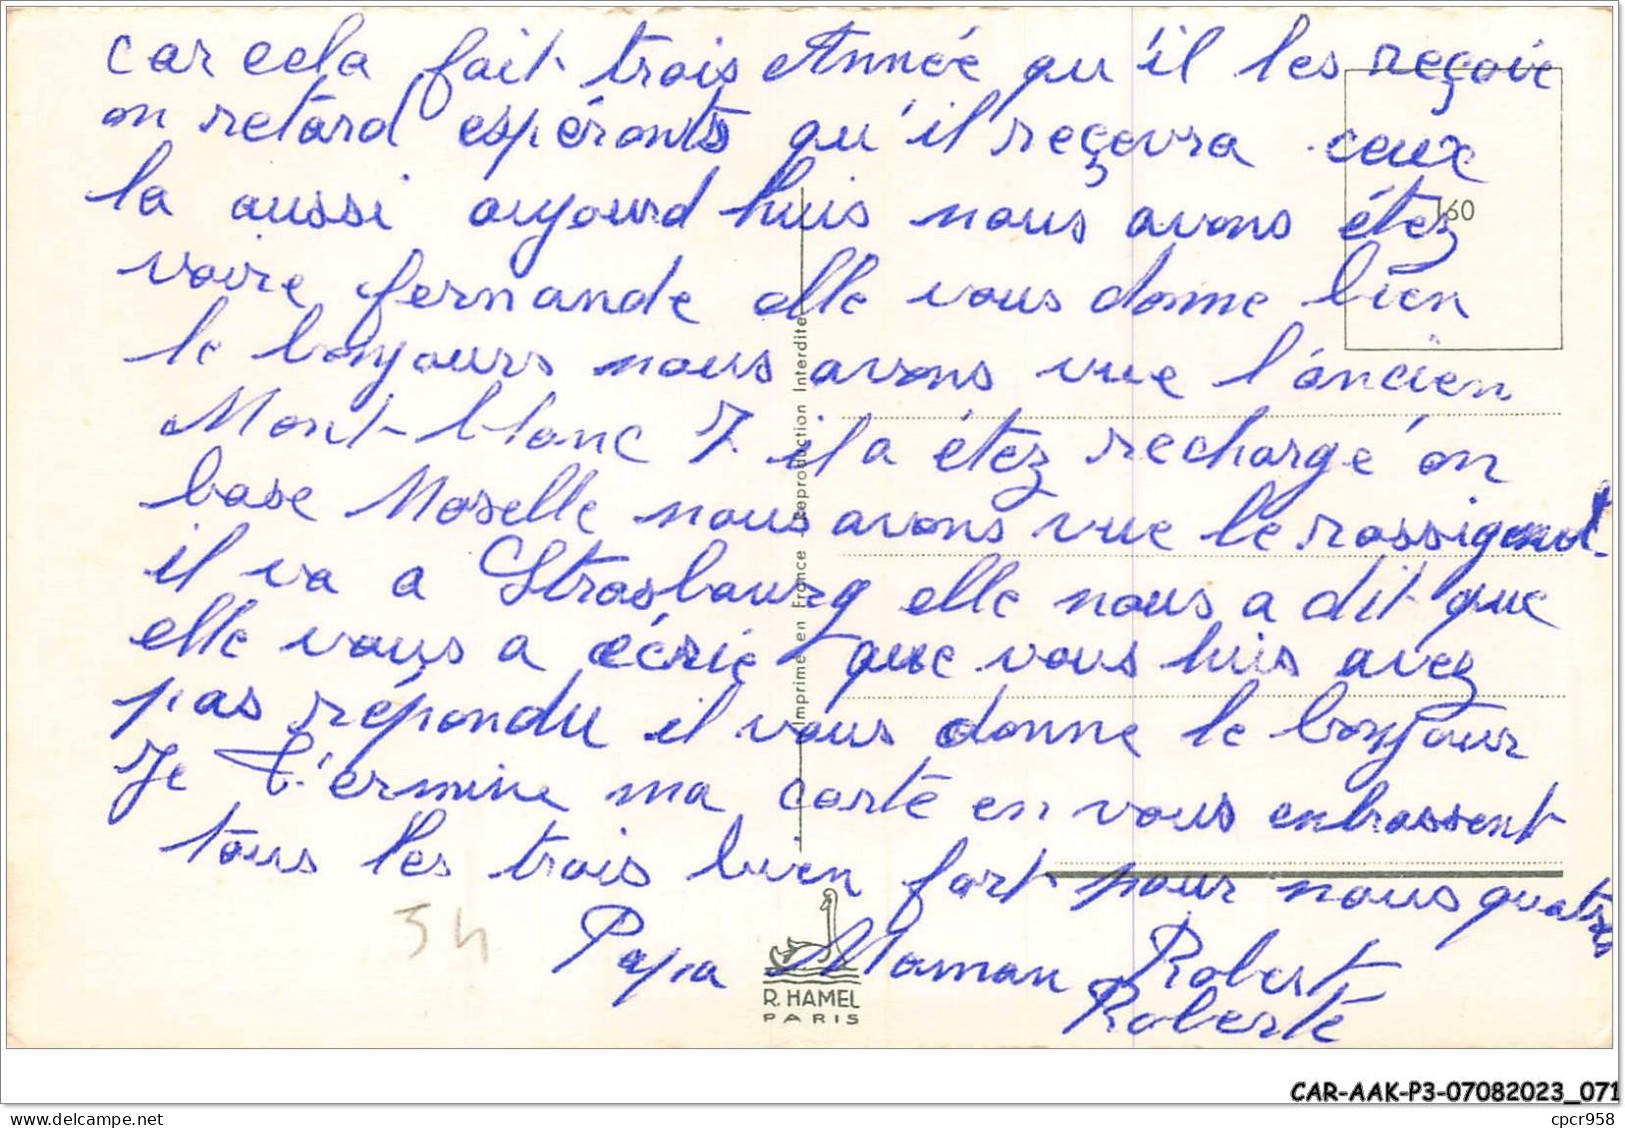 car cela fait trois Année qu'il les reçoie
on retard espéronts qu'il reçevra ceux
la aussi aujourd huis nous avons étez
160
voire fernande elle vous donne bien
le bonjours nous avons vue l'ancien
Mont-blanc 7 il a étez rechargé on
base Moselle nous avons vue le rossignol
il va a Strasbourg elle nous a dit que
elle vous a écrie que vous huis avez
pas répondu il vous donne le bonjour
Je t'ermine ma carte en vous enbrassent
tous les trois bien fort pour nous quatres
Papa Maman Robert
Roberte
34
Imprimé en France - Reproduction Interdite
R. HAMEL
PARIS
CAR-AAK-P3-07082023_071
cpcr958